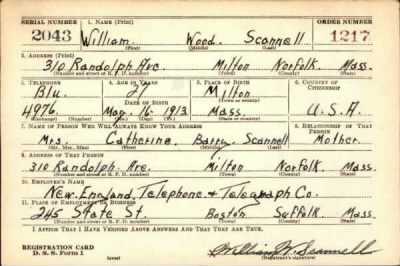 SERIAL NUMBER 1. NAME (Print) ORDER NUMBER
2043 William Wood Scannell 1217
(First) (Middle) (Last)
2. ADDRESS (Print)
310 Randolph Ave. Milton Norfolk Mass.
(Number and street or R. F. D. number) (Town) (County) (State)
3. TELEPHONE 4. AGE IN YEARS 5. PLACE OF BIRTH 6. COUNTRY OF CITIZENSHIP
Blu. 27 Milton
DATE OF BIRTH (Town or county)
4976 1913 Mass. U.S.A.
(Exchange) (Number) (Mo.) (Day) (Yr.) (State or country)
7. NAME OF PERSON WHO WILL ALWAYS KNOW YOUR ADDRESS 8. RELATIONSHIP OF THAT PERSON
Mrs. Catherine Barry Scannell Mother.
(Mr., Mrs., Miss) (First) (Middle) (Last)
9. ADDRESS OF THAT PERSON
310 Randolph Ave. Milton Norfolk Mass.
(Number and street or R. F. D. number) (Town) (County) (State)
10. EMPLOYER'S NAME
New England Telephone & Telegraph Co.
11. PLACE OF EMPLOYMENT OR BUSINESS
245 State St. Boston Suffolk Mass.
(Number and street or R. F. D. number) (Town) (County) (State)
I AFFIRM THAT I HAVE VERIFIED ABOVE ANSWERS AND THAT THEY ARE TRUE.
REGISTRATION CARD
D. S. S. Form 1 (over) William W Scannell
(Registrant's signature)